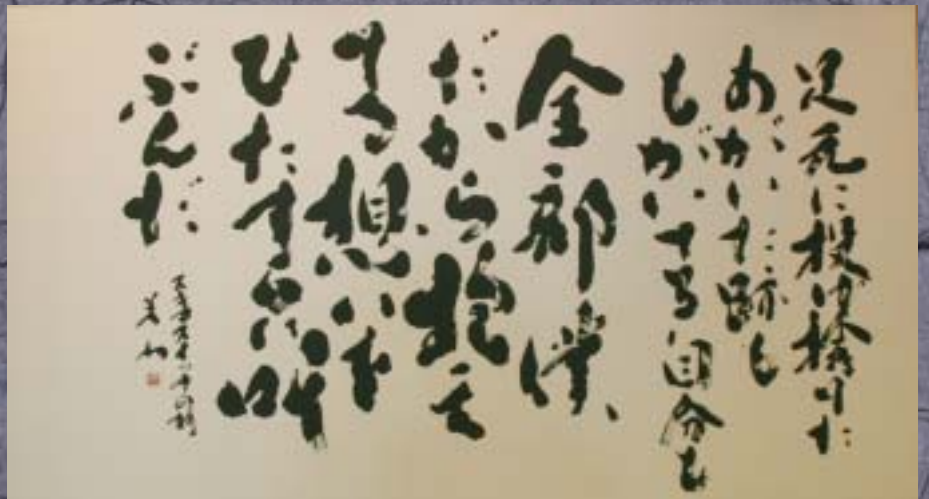 足元に投げ捨てた
あがいた跡も
もがいてる自分も
全部僕、
だから抱え
てる想いを
ひたすらに叫
ぶんだ